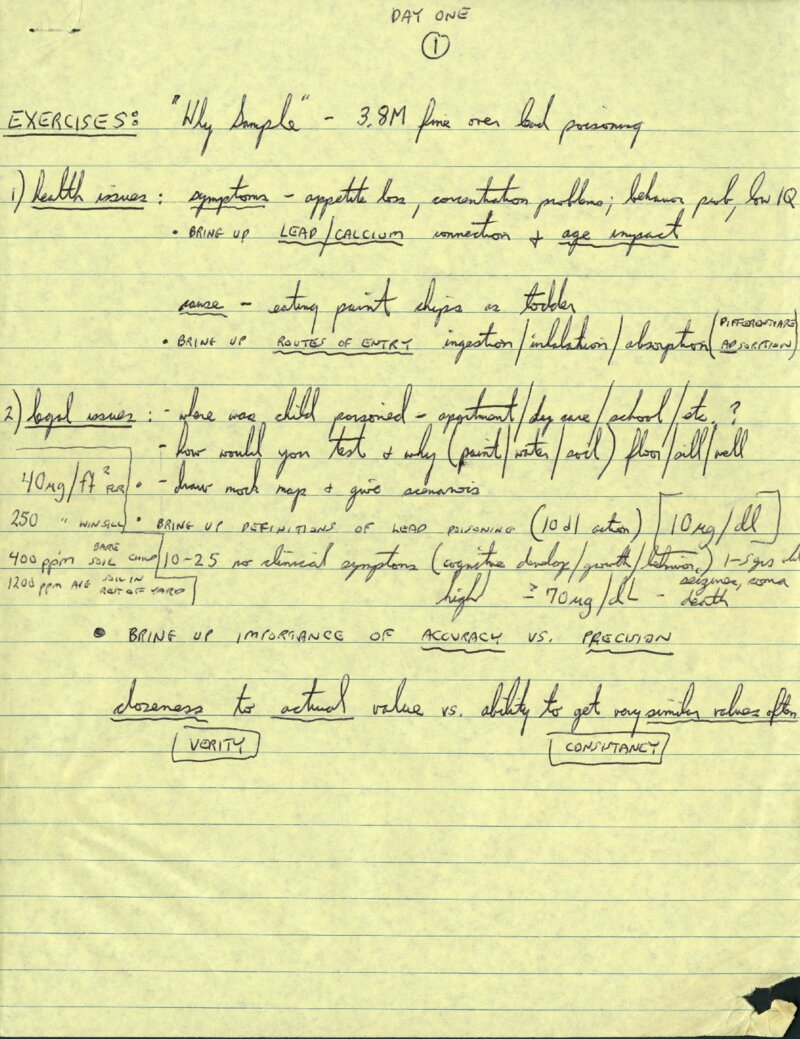 DAY ONE
1
EXERCISES: "Why Sample" - 3.8M fine over lead poisoning
1) health issues: symptoms - appetite loss, concentration problems; behavior prob, low IQ
• BRING UP LEAD/CALCIUM connection & age impact
cause - eating paint chips as todder
• BRING UP ROUTES OF ENTRY ingestion/inhalation/absorption (DIFFERENTIATE
ADSORPTION)
2) legal issues: - where was child poisoned - apartment/day care/school/etc.?
- how would you test & why (paint/water/soil) floor/sill/well
40µg/ft² FLR • - draw mock map & give scenarois
250 " WINSILL • BRING UP DEFINITIONS OF LEAD POISONING (10 dl action) [10 µg/dl]
400 ppm BARE SOIL CHILD 10-25 no clinical symptoms (cognitive develop/growth/behavior) 1-5yrs
1200 ppm AVG SOIL IN REST OF YARD high ≥ 70µg/dL - seizures, coma
death
• BRING UP IMPORTANCE OF ACCURACY VS. PRECISION
closeness to actual value vs. ability to get very similar values often
VERITY CONSISTANCY